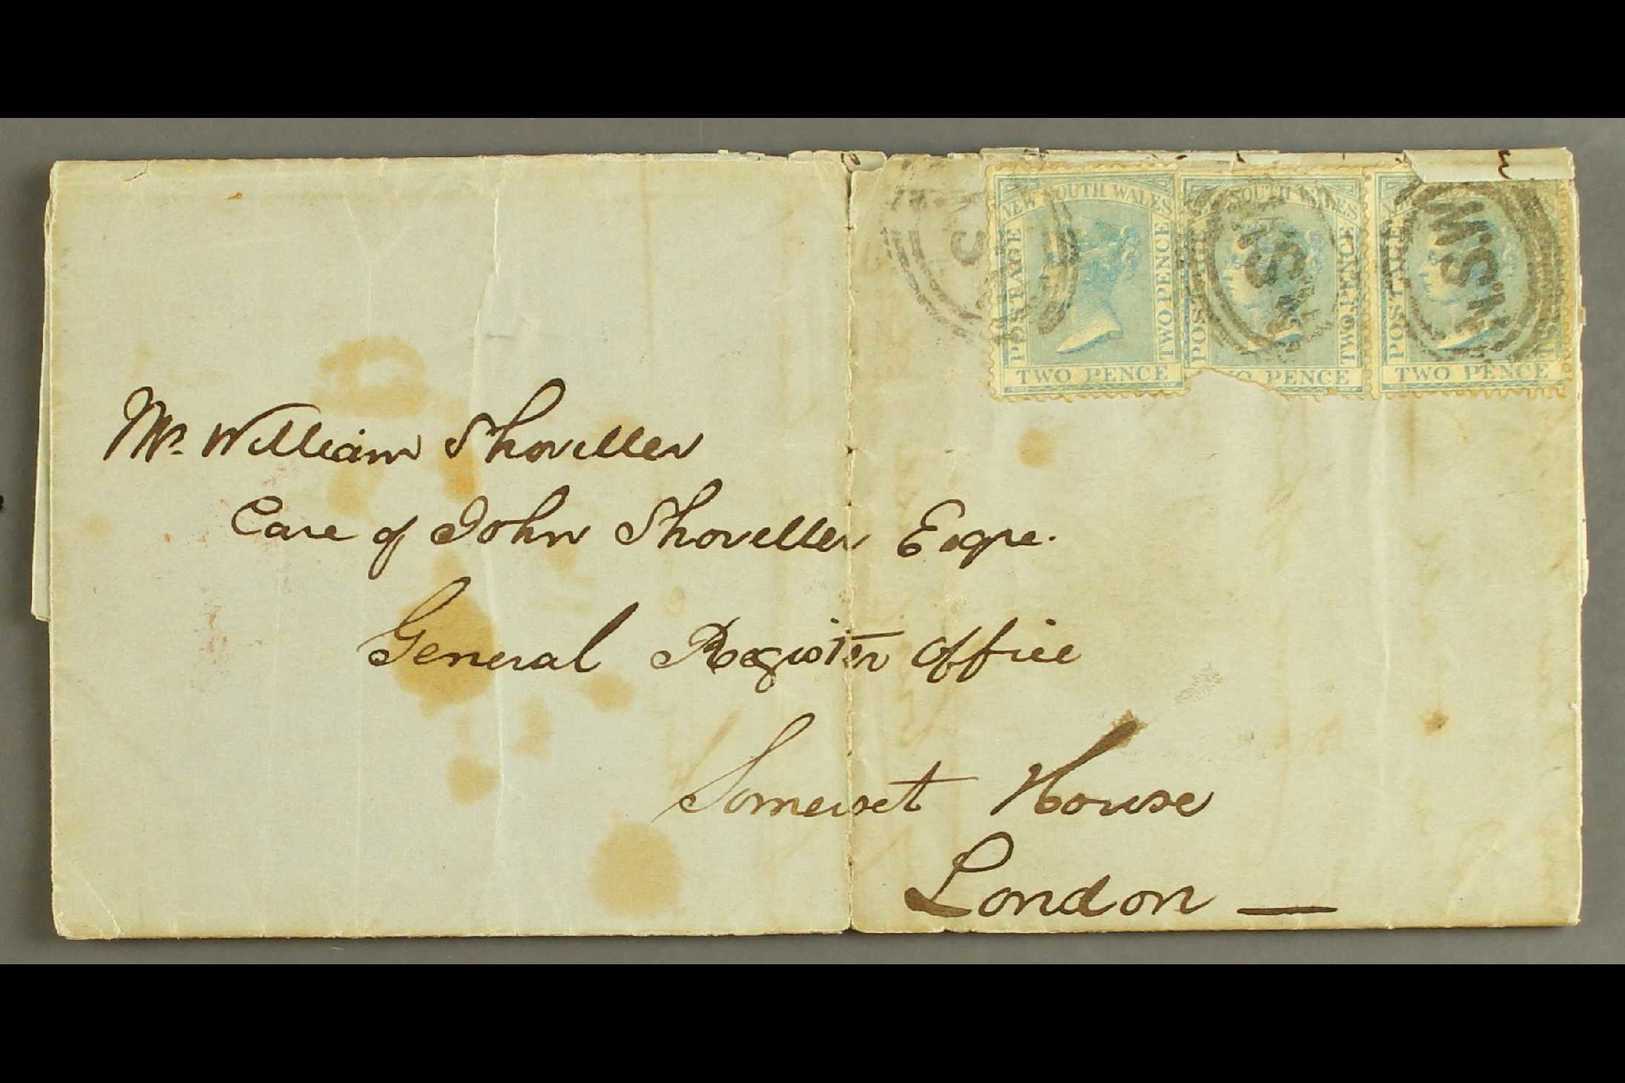 NEW SOUTH WALES
POSTAGE
TWO PENCE
TWO PENCE
SOUTH WALES
TWO PENCE
PENCE
POSTAGE
TWO PENCE
N.S.W
Mr. William Shoveller
Care of John Shoveller Esqre.
General Register Office
Somerset House
London —